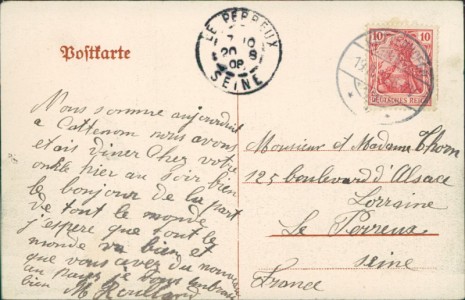 Postkarte
LE PERREUX
7 10
20 8
08
SEINE
10 10
DEUTSCHES REICH
Nous somme aujourduit
a Cattenom nous avons
etais diner Chez votre
onkle hier au soir bien
le bonjour de la part
de tout le monde
j'espere que tout le
monde va bien et
que vous avez du nouveau
au pays je vous embrasse
bien M Roulland
Monsieur et Madame Thorn
125 boulevard d'Alsace
Lorraine
Le Perreux
seine
France